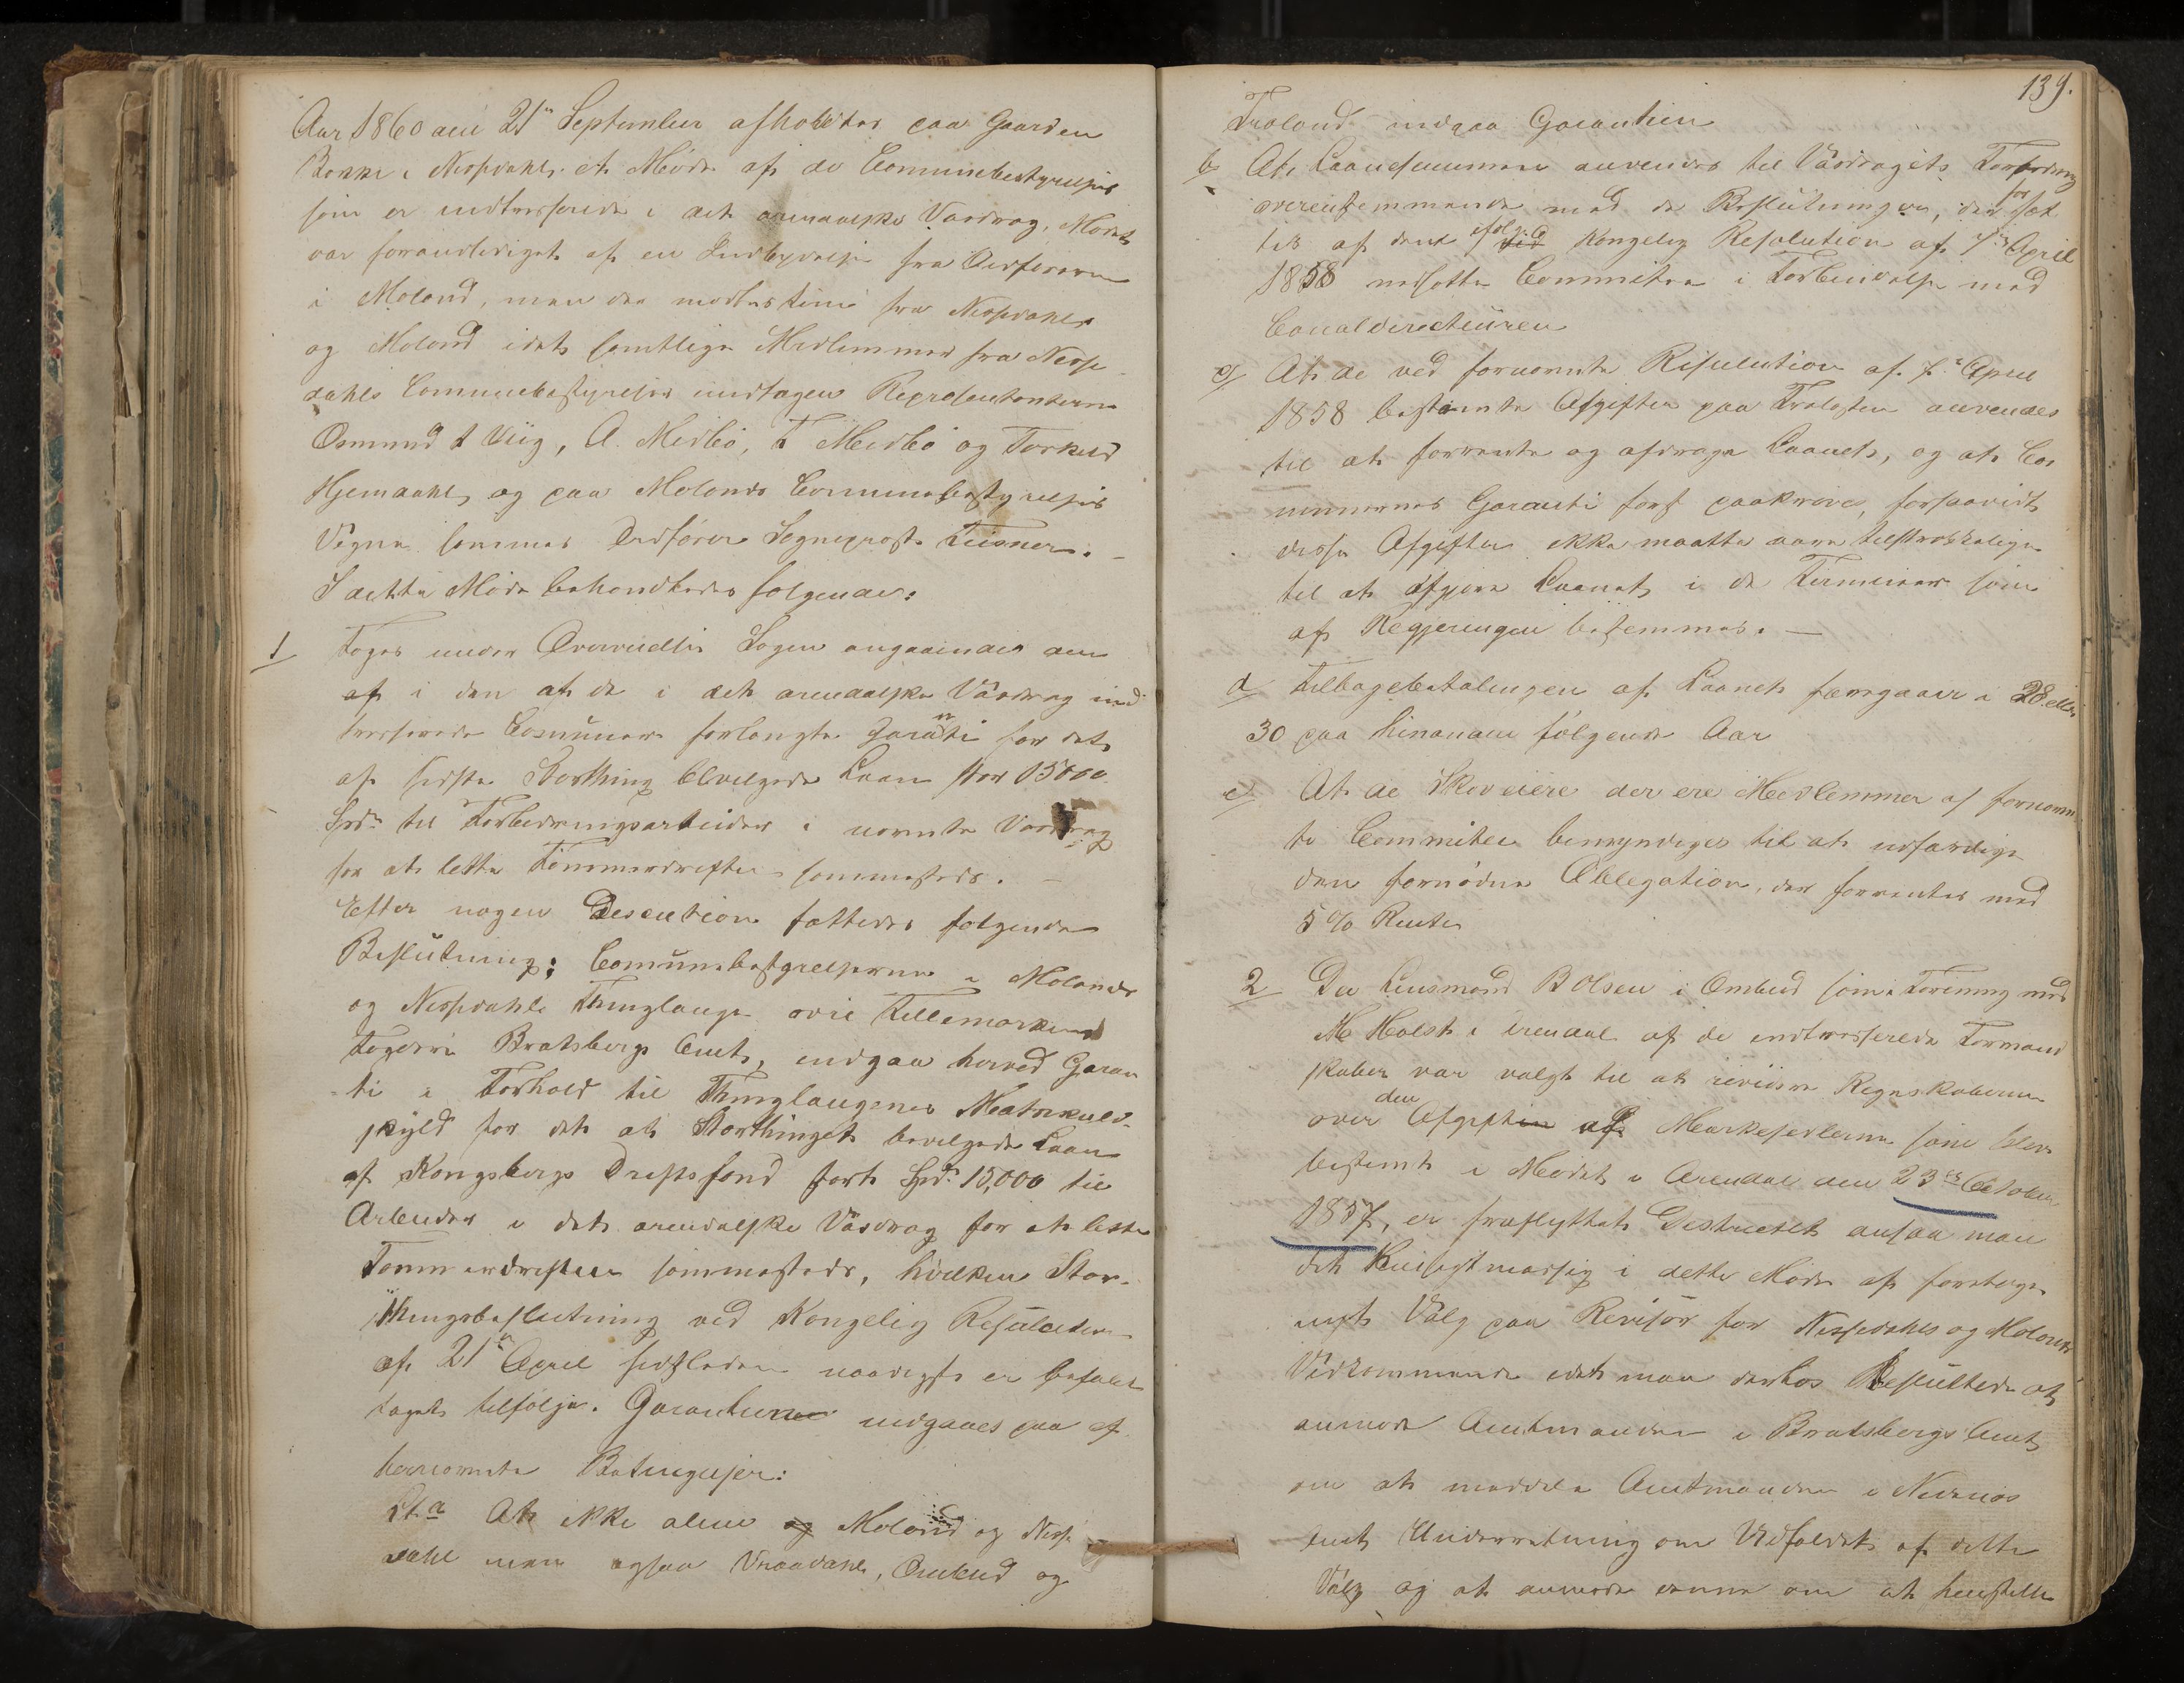 Aar 1860 den 21de September afholdtes paa Gaarden
Bakke i Nissedahl et Møde af de Communebestyrelser
som er indterserede i det arendalske Vasdrag. Mødet
var foranlediget af en Indbydelse fra Ordføreren
i Moland, men der mødtes kun fra Nissedahl
og Moland idet samtlige Medlemmer fra Nisse
dahls Communebestyrelse undtagen Repræsentanterne
Osmund T Viig, A. Medbö, T Medbö og Torkild
Hjemdahl, og paa Molands Communebestyrelses
Vegne sammes Ordfører Sogneprost Teisner. –
I dette Møde behandledes følgende:
1 Toges under Overveielse Sagen angaaende den
af i den af de i det arendalske Vasdrag ind
terserede Communer forlangte Garanti for det
af sidste Storthing bevilgede Laan stor 15000
Spd. til Forbedringsarbeider i nævnte Vasdrag
for at lette Tømmerdriften sammesteds. –
Efter nogen Discution fattedes følgende
Beslutning: Communebestyrelserne i Molands
og Nissedahls Thinglauge øvre Tellemarkens
Fogderi Bratsbergs Amt, indgaa herved Garan
ti i Forhold til Thinglaugenes Matrikul-
skyld for det af Storthinget bevilgede Laan
af Kongsbergs Driftsfond stort Spd. 15,000 til
Arbeider i det arendalske Vasdrag for at lette
Tømmerdriften sammesteds, hvilken Stor-
thingsbeslutning ved Kongelig Resolution
af 21de April sidstleden naadigst er befalet
taget tilfølge. Garantien indgaaes paa ef
ternævnte Betingelser:
Lit. a At ikke alene og Moland og Nisse
dahl men ogsaa Vraadahl, Omlid og
139.
Froland indgaa Garantien
b At Laanesummen anvendes til Vasdragets Forbedring
overensstemmende med de Beslutninger, der for fat
tes af den ifølge ved Kongelig Resolution af 7de April
1858 nedsatte Committee i Forbindelse med
Canaldirecteuren
c At de ved fornævnte Resolution af 7de April
1858 bestemte Afgifter paa Trælasten anvendes
til at forrente og afdrage Laanet, og at Com
munernes Garanti først paakræves, forsaavidt
disse Afgifter ikke maatte være tilstrækkelige
til at afgjøre Laanet i de Terminer som
af Regjeringen bestemmes. –
d Tilbagebetalingen af Laanet foregaaer i 28 eller
30 paa hinanden følgende Aar
e At de Skoveiere der ere Medlemmer af fornævn
te Committee bemyndiges til at udfærdige
den fornødne Obligation, der forrentes med
5 % Rente
2 Da Lensmand B Olsen i Omlid som i Forening med
M Holst i Arendal af de indterserede Formand
skaber var valgt til at revidere Regnskaberne
over den Afgiften af Mærkesedlerne som blev
bestemt i Mødet i Arendal den 23de October
1857, er fraflyttet Districtet ansaa man
det hensigtmæssig i dette Møde at foretage
nyt Valg paa Revisor for Nissedahls og Molands
Vedkommende idet man derhos besluttede at
anmode Amtmanden i Bratsbergs Amt
om at meddele Amtmanden i Nedenes
Amt Underretning om Udfaldet af dette
Valg og at anmode denne om at henstille